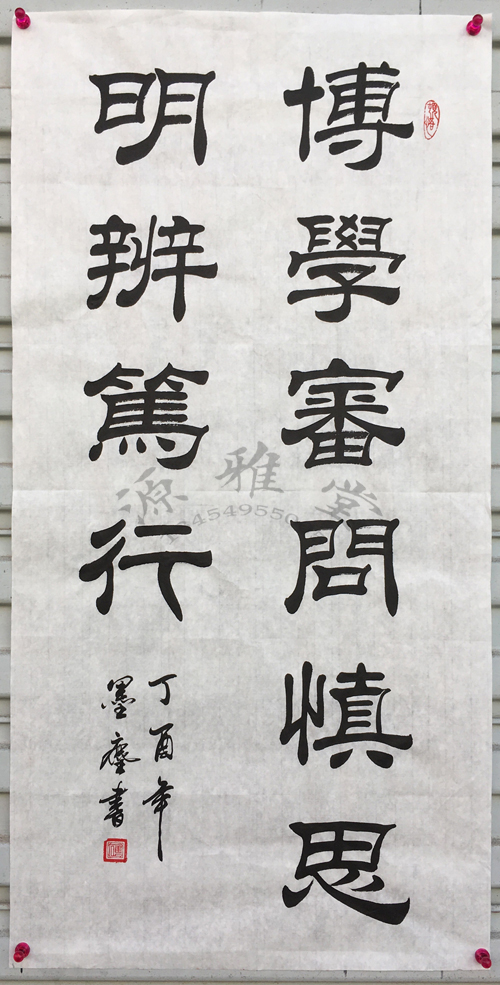 博學審問慎思
明辨篤行
丁酉年
墨塵書
源雅堂